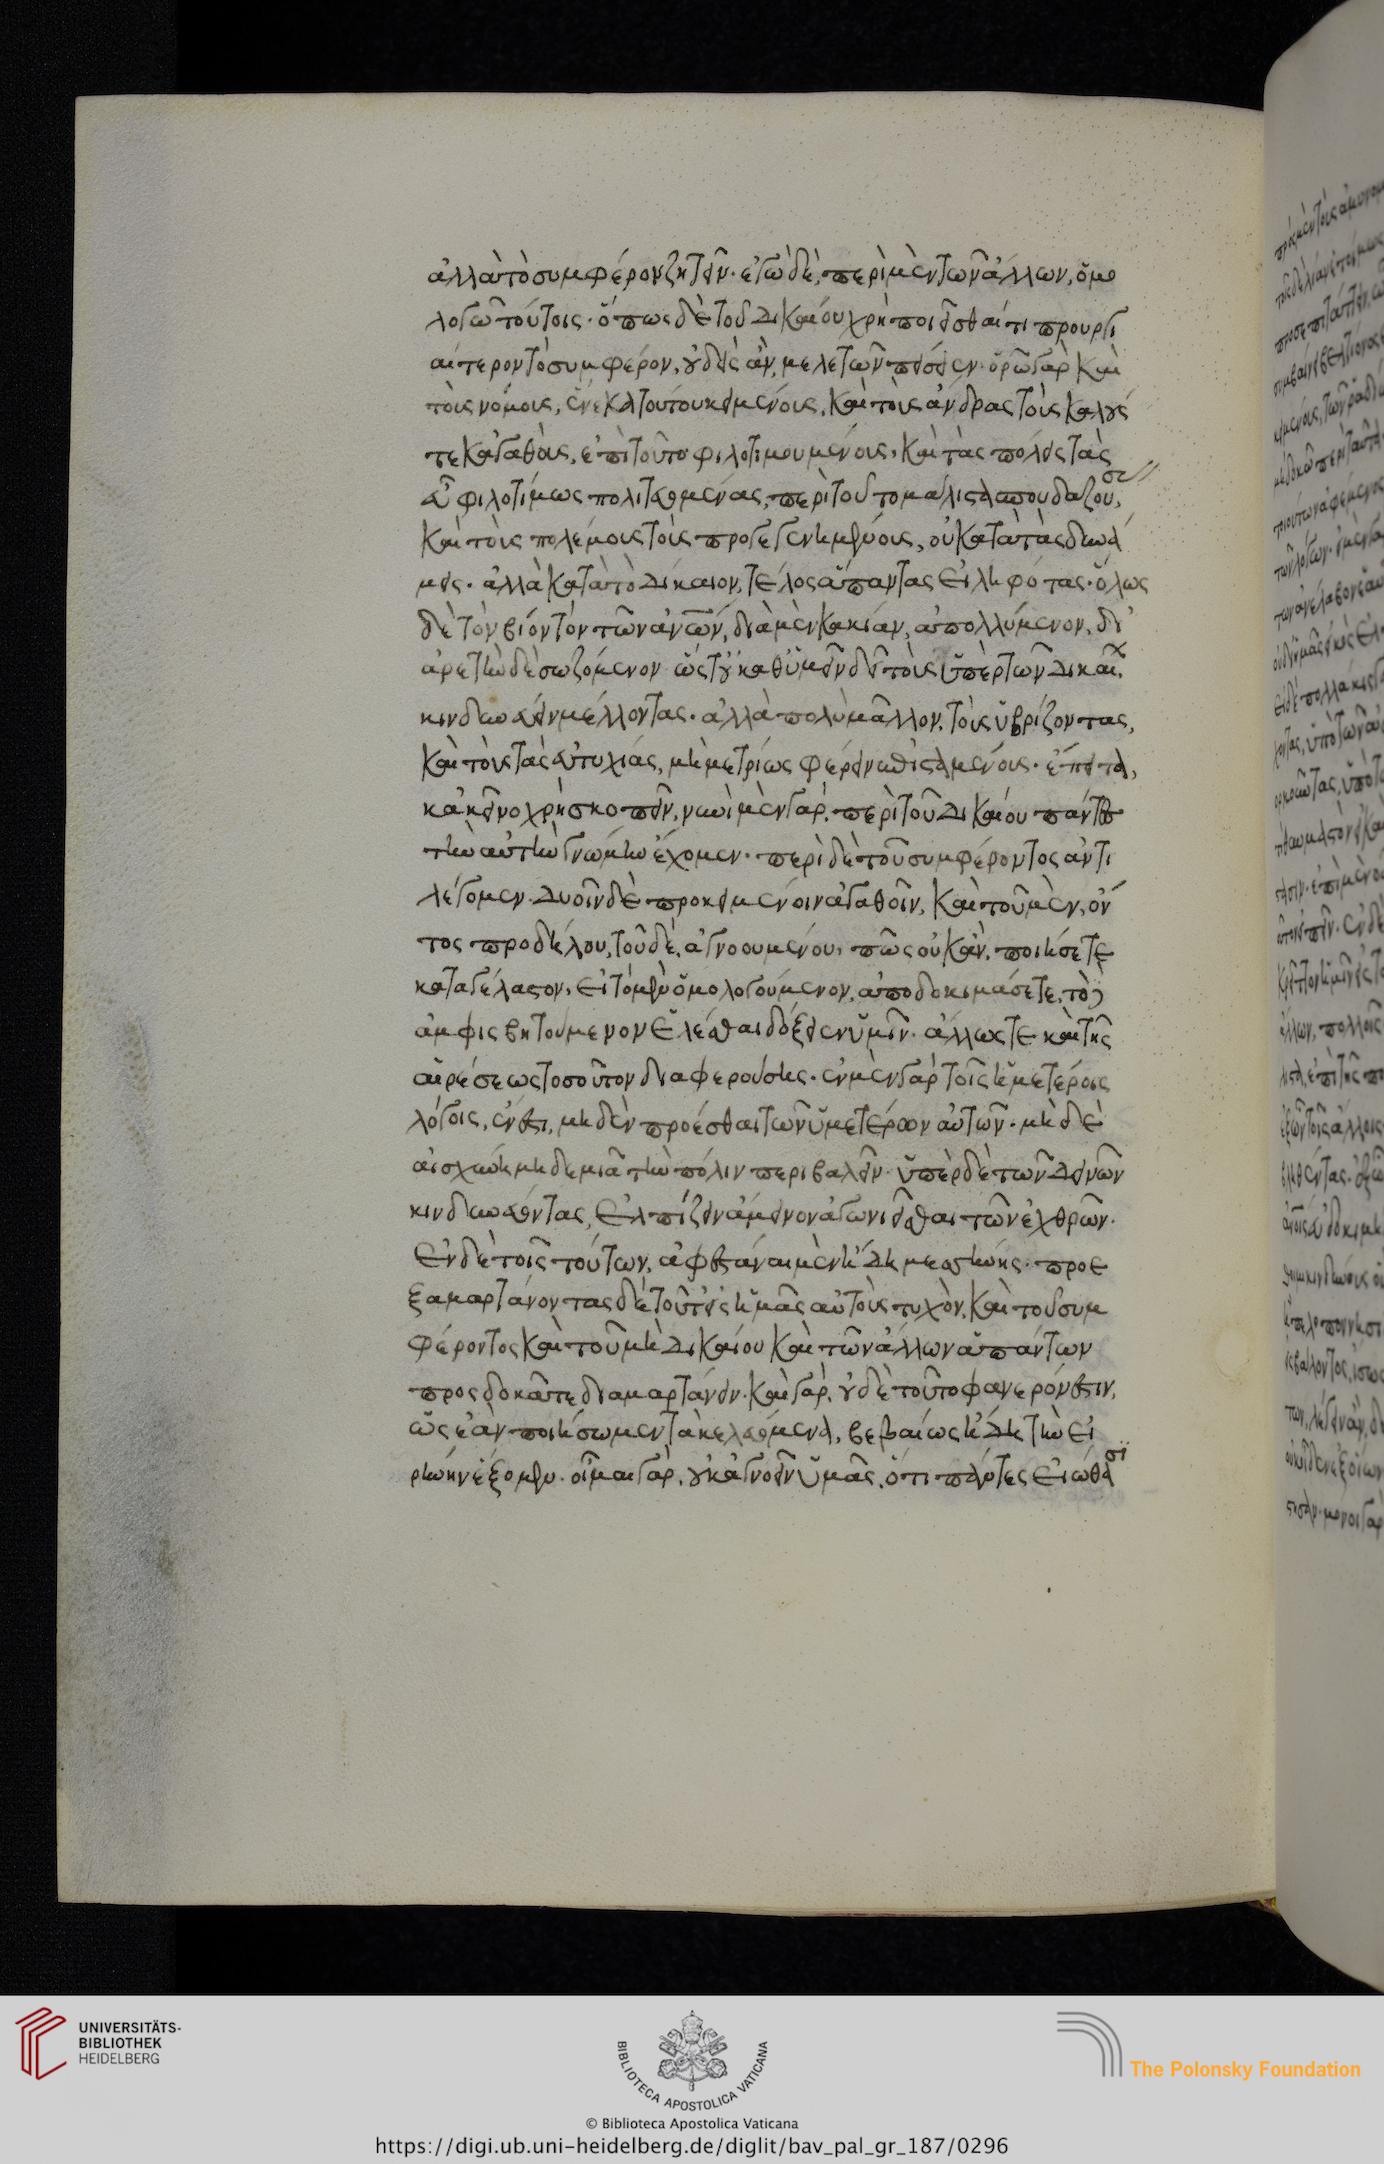 ἀλλὰ τὸ συμφέρον ζητεῖν· ἐγὼ δὲ, περὶ μὲν τῶν ἄλλων, ὁμο
λογῶ τούτοις· ὅπως δὲ τοῦ δικαίου χρὴ ποιεῖσθαί τι προυργι
αίτερον τὸ συμφέρον, οὐδεὶς ἂν, με λέγων πείσειεν· ὁρῶ γὰρ καὶ
τοὺς νόμους, ἕνεκα τούτου κειμένους, καὶ τοὺς ἄνδρας τοὺς καλούς
τε κἀγαθοὺς, ἐπὶ τοῦτο φιλοτιμουμένους, καὶ τὰς πόλεις τὰς
εὖ φιλοτίμως πολιτευομένας, περὶ τοῦτο μάλιστα σπουδαζούσας,
καὶ τοὺς πολέμους τοὺς προγεγενημένους, οὐ κατὰ τὰς δυνά
μεις· ἀλλὰ κατὰ τὸ δίκαιον, τέλος ἅπαντας εἰληφότας· ὅλως
δὲ τὸν βίον τὸν τῶν ἀνων, διὰ μὲν κακίαν, ἀπολλύμενον, δι'
ἀρετὴν δὲ σωζόμενον· ὥστ' οὐκ ἀθυμεῖν δεῖ τοὺς ὑπὲρ τῶν δικαίων
κινδυνεύειν μέλλοντας· ἀλλὰ πολὺ μᾶλλον, τοὺς ὑβρίζοντας,
καὶ τοὺς τὰς εὐτυχίας, μὴ μετρίως φέρειν ἐπισταμένους· ἔπειτα,
κἀκεῖνο χρὴ σκοπεῖν, νυνὶ μὲν γὰρ, περὶ τοῦ δικαίου πάντες
τὴν αὐτὴν γνώμην ἔχομεν· περὶ δὲ τοῦ συμφέροντος ἀντι
λέγομεν· δυοῖν δὲ προκειμένοιν ἀγαθοῖν, καὶ τοῦ μὲν, ὄν
τος προδήλου, τοῦ δὲ, ἀγνοουμένου, πῶς οὐκ ἂν, ποιήσετε
καταγέλαστον, εἰ τὸ μὲν ὁμολογούμενον, ἀποδοκιμάσετε, τὸ δ'
ἀμφισβητούμενον ἑλέσθαι δόξειεν ὑμῖν· ἄλλως τε καὶ τῆς
αἱρέσεως τοσοῦτον διαφερούσης· ἐν μὲν γὰρ τοῖς ἡμετέροις
λόγοις, ἔνεστι, μηδὲν προέσθαι τῶν ὑμετέρων αὐτῶν· μὴ δὲ
αἰσχύνῃ μηδεμιᾷ τὴν πόλιν περιβαλεῖν· ὑπὲρ δὲ τῶν δεινῶν
κινδυνεύοντας, ἐλπίζειν ἄμεινον ἀγωνιεῖσθαι τῶν ἐχθρῶν·
ἐν δὲ τοῖς τούτων, ἀφεστάναι μὲν ἤδη μεσσήνης· προε
ξαμαρτάνοντας δὲ τοῦτ' εἰς ἡμᾶς αὐτοὺς τυχὸν, καὶ τοῦ συμ
φέροντος καὶ τοῦ μὴ δικαίου καὶ τῶν ἄλλων ἁπάντων
προσδοκᾶτε διαμαρτάνειν· καὶ γὰρ, οὐδὲ τοῦτο φανερόν ἐστιν,
ὡς ἐὰν ποιήσωμεν τὰ κελευόμενα, βεβαίως ἤδη τὴν εἰ
ρήνην ἕξομεν· οἶμαι γὰρ, οὐκ ἀγνοεῖν ὑμᾶς, ὅτι πάντες εἰώθασι
UNIVERSITÄTS-
BIBLIOTHEK
HEIDELBERG
BIBLIOTECA APOSTOLICA VATICANA
© Biblioteca Apostolica Vaticana
The Polonsky Foundation
https://digi.ub.uni-heidelberg.de/diglit/bav_pal_gr_187/0296